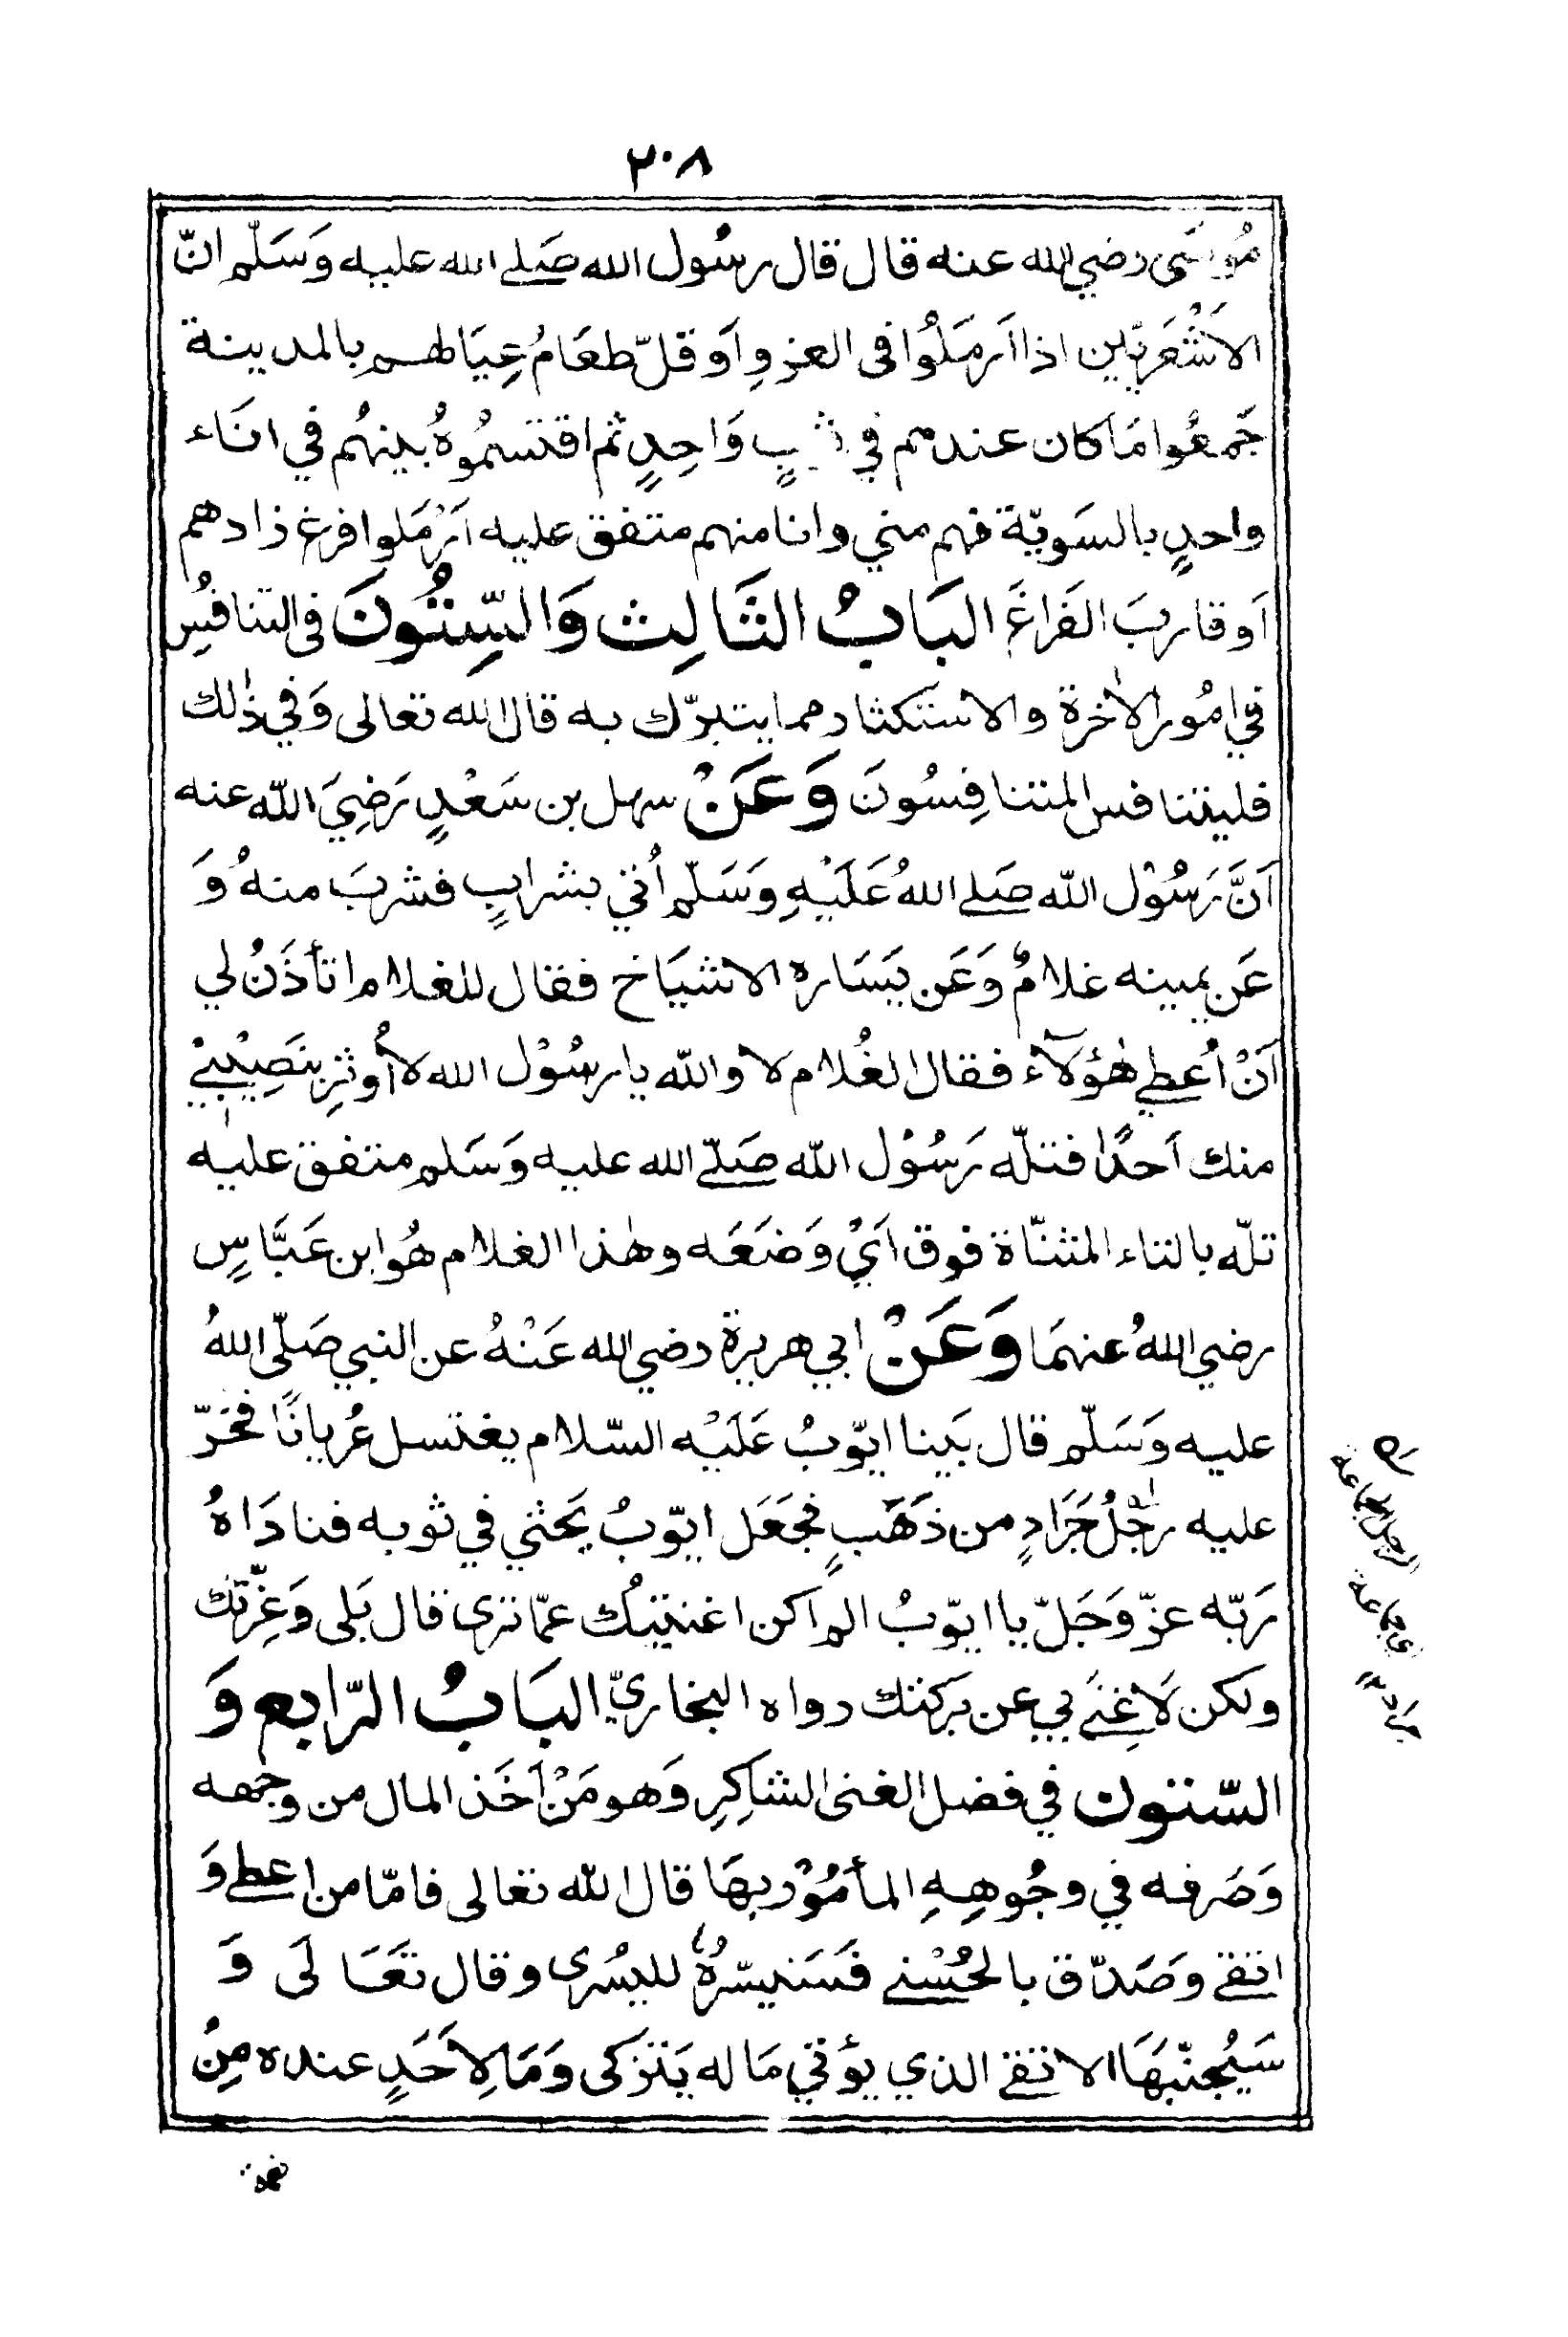 ٢٠٨
مُوسَى رضي الله عنه قال قال رسُول الله صَلے الله عليه وَسَلّم انّ
الاَشْعَرِيّين اذا اَرمَلُوا فى الغزوِ اَو قلّ طعَامُ عِيَالهم بالمدينة
جَمعُوا مَا كان عندهم في ثوبٍ وَاحِدٍ ثم اقتسمُوهُ بينهُم في انَاء
واحدٍ بالسَويّة فهم مني وانا منهم متفق عليه اَرْمَلوا فرغ زادهم
اَو قاربَ الفَراغَ البَابُ الثَالِث وَالسِّتُونَ فى التنافُسِ
في امُور الاٰخرة والاستكثار مما يتبرّك به قال الله تعالى وَفي ذٰلك
فليتنافس المتنافِسُونَ وَعَنْ سهل بن سَعْدٍ رَضِيَ اللّه عنه
اَنَّ رَسُوْل اللّه صَلے اللهُ عَلَيْهِ وَسَلّم اُتي بشرابٍ فشربَ منهُ وَ
عَن يمينه غلامٌ وَعَن يَسَاره الاشيَاخ فقال للغلام اتأذَنُ لي
اَنْ اُعطي هٰؤلآء فقال الغُلام لا واللّه يا رسُوْل الله لا اُوثِر بنَصِيْبيْ
منك اَحدًا فتلّه رَسُوْل اللّه صَلّے الله عليه وَسَلم متفق عليٰه
تلّه بالتاء المثنّاة فوق اَيْ وَضَعَه وهٰذا الغلام هُوَ ابن عَبَّاسٍ
رضي اللهُ عنهمَا وَعَنْ ابي هريرة رضي الله عَنْهُ عن النبي صَلّى اللهُ
عليه وَسَلّم قال بَينا ايّوبُ عَلَيْه السّلام يغتسل عُريانًا فخَرّ
عليه رِجْلُ جَرَادٍ من ذَهَبٍ فجَعَل ايّوبُ يَحثي في ثوبه فنادَاهُ
رَبّه عزّ وَجَلّ يا ايّوبُ الم اكن اغنيتُك عمّا ترى قال بَلى وَعِزّتك
ولكن لَا غِنَے بي عن بَركتك رواه البخاريّ البَابُ الرّابع وَ
السّتون في فضل الغنى الشاكِرِ وَهو مَنْ اَخَذ المال من وجهه
وَصَرفه في وجُوهِهِ المأمُوْر بهَا قال اللّه تعالى فامّا من اعطے وَ
اتقے وصَدّق بالحُسْنے فَسَنيسّرهُ لليُسْرى وقال تعَالَى وَ
سَيُجنّبهَا الاتقے الذي يؤتي مَا له يَتَزكى وَمَا لِاَحَدٍ عنده مِنْ